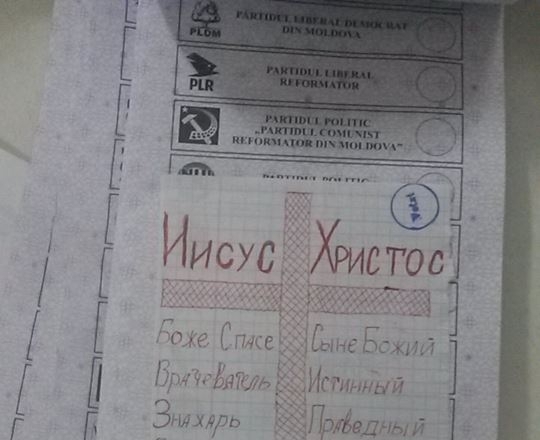 PLDM
PARTIDUL LIBERAL DEMOCRAT
DIN MOLDOVA
PLR
PARTIDUL LIBERAL
REFORMATOR
PARTIDUL POLITIC
„PARTIDUL COMUNIST
REFORMATOR DIN MOLDOVA”
PARTIDUL POLITIC
Votat
Иисус Христос
Боже Спасе Сыне Божий
Врачеватель Истинный
Знахарь Праведный